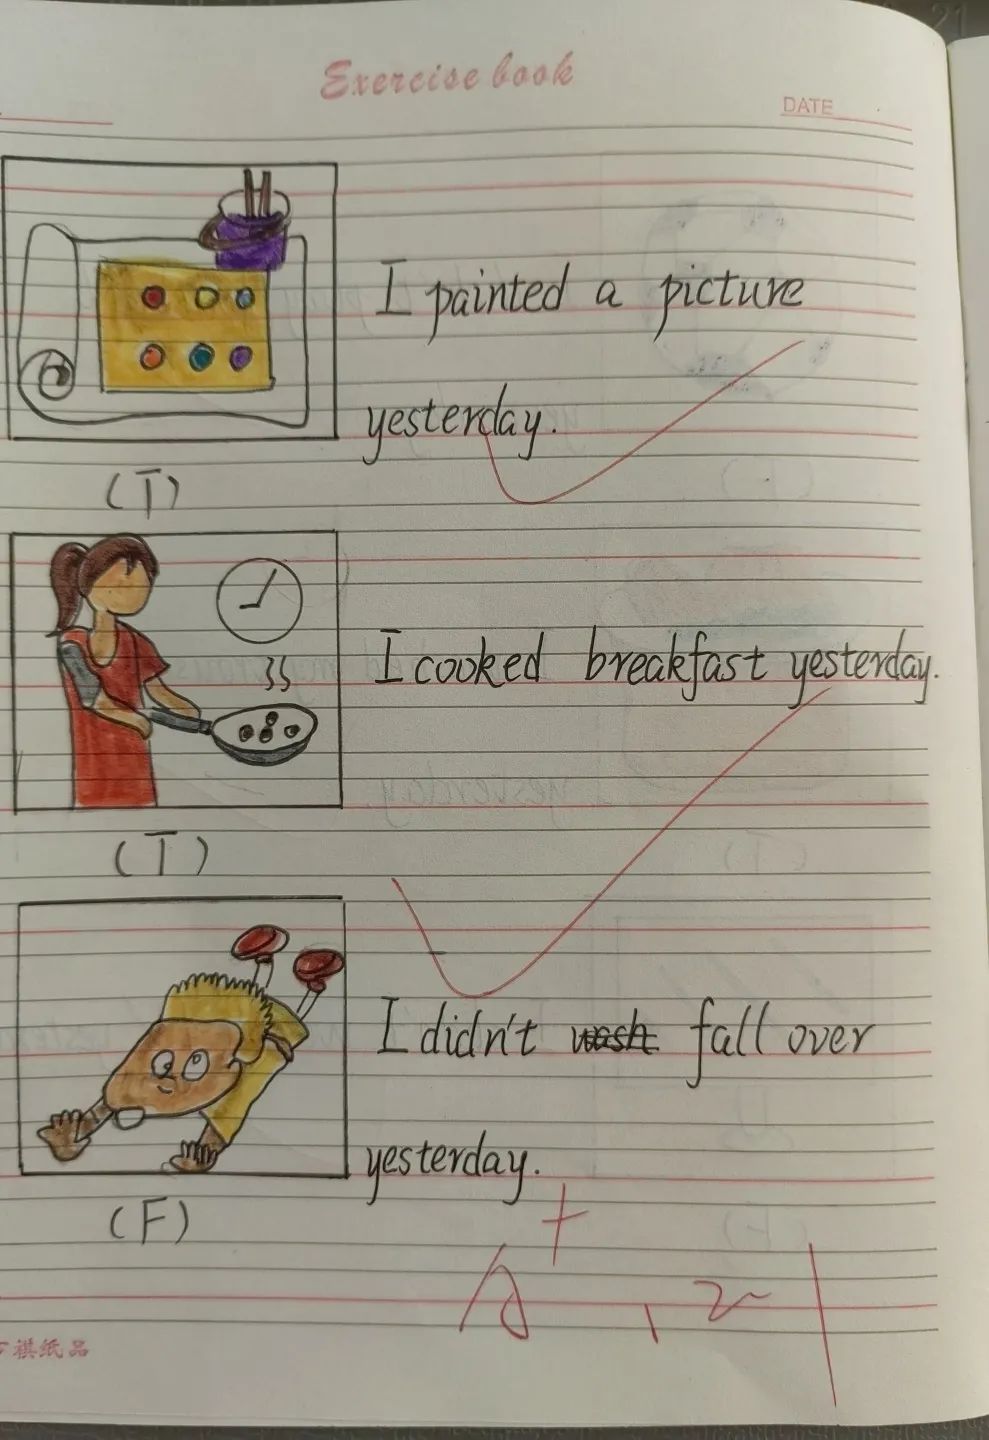 Exercise book
DATE
I painted a picture
yesterday.
(T)
I cooked breakfast yesterday.
(T)
I didn't wash fall over
yesterday.
(F)
A+
祺纸品